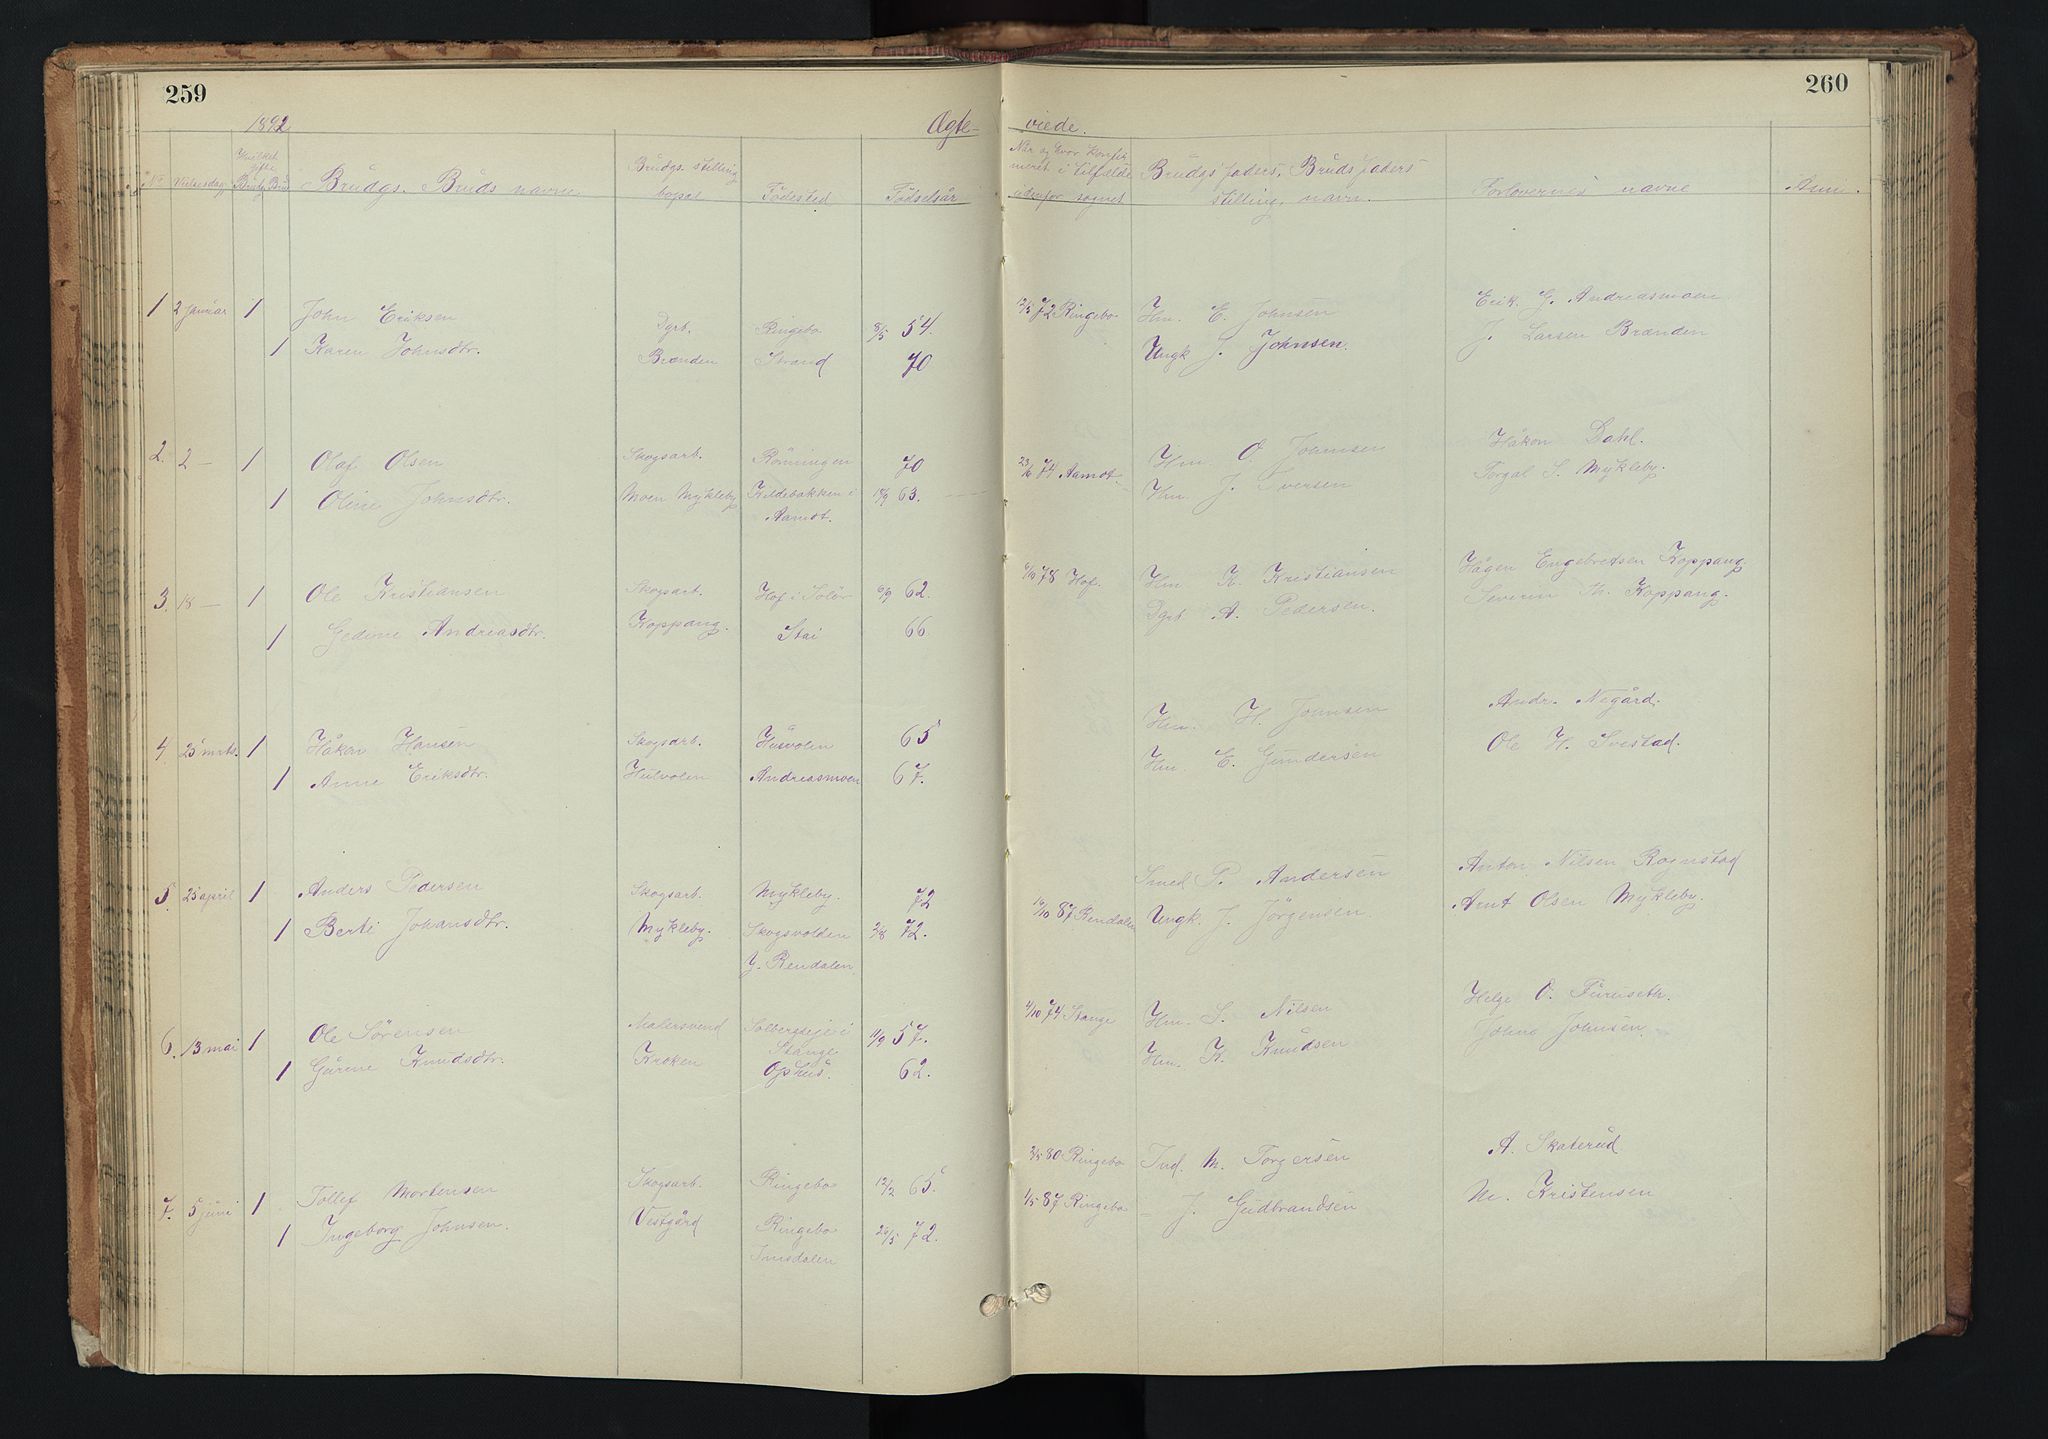 259
260
1892
Ægte-
viede.
No
Vielsesdag
Hvilket gifte
Brudg Brud
Brudgs. Bruds navne
Brudgs. stilling
bopæl
Fødested
Fødselsår
Når og hvor konfir
meret i tilfælde
udenfor sognet
Brudgs faders, Bruds faders
stilling, navn.
Forlovernes navne
Anm.
1 2 Januar 1 John Eriksen Dgrb. Ringebo 8/5 54. 12/5 72 Ringebo Hm. E. Johnsen Erik G. Andreasmoen
1 Karen Johnsdtr. Brænden Strand 70 Ungk J. Johnsen. J. Larsen Brænden
2. 2 — 1 Olaf Olsen Skogsarb. Rönningen 70 Hm. O. Johnsen Håkon Dahl.
1 Oline Johnsdtr. Moen Mykleby Kildebakken i 18/9 63. 23/6 74 Aamot Hm. J. Iversen Torgal S. Mykleby.
Aamot.
3. 18 — 1 Ole Kristiansen Skogsarb. Hof i Solör 6/9 62. 6/10 78 Hof. Hm K. Kristiansen Hågen Engebretsen Koppang.
1 Gedine Andreasdtr. Koppang. Stai 66 Dgrb A. Pedersen. Severin Th. Koppang.
4 25 mrts. 1 Håkon Hansen Skogsarb. Husvolen 65 Hm. H. Johnsen Andr. Negård.
1 Anne Eriksdtr. Hulvolen Andreasmoen 67. Hm E. Gundersen Ole H. Svestad.
5. 25 april 1 Anders Pedersen Skogsarb. Mykleby. 72 Smed P. Andersen Anton Nilsen Rognstad
1 Berte Johansdtr. Mykleby. Skogsvolden 2/8 72. 16/10 87 Rendalen Ungk J. Jörgensen Amt Olsen Mykleby.
Y. Rendalen
6. 13 mai 1 Ole Sørensen Malersvend Solbergseje i 11/9 57. 4/10 74 Stange Hm. S. Nilsen Helge O. Furuseth.
Stange
1 Gurine Knudsdtr. Kroken Ophus. 62. Hm. K. Knudsen Johns Johnsen
7. 5 juni 1 Tollef Mortensen Skogsarb. Ringebo 12/2 65. 2/5 80 Ringebo Ind. M. Torgersen A. Skaterud
1 Ingeborg Johnsen. Vestgård Ringebo 26/5 72. 1/5 87 Ringebo — J. Gudbrandsen M. Kristensen
Imsdalen